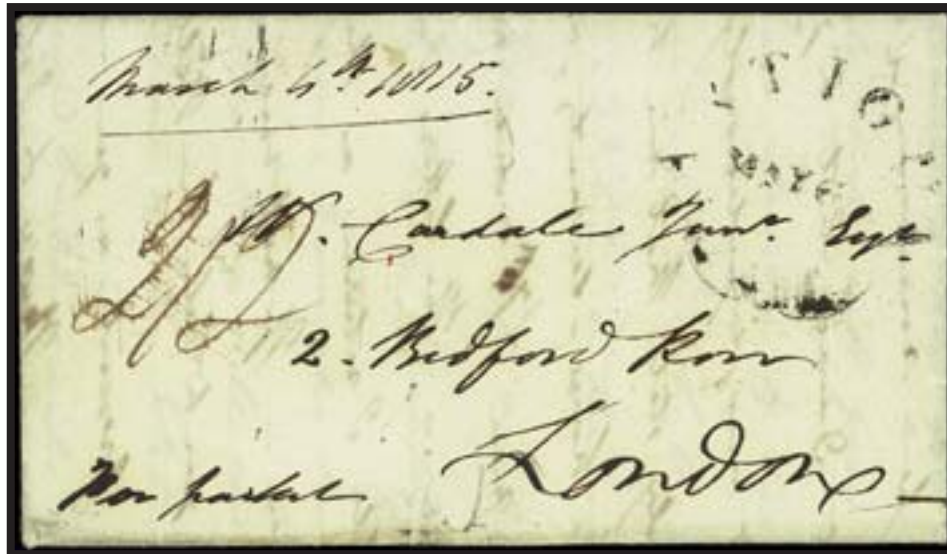 March 4th 1815.
2/2
W. Cardale Junr. Esqr
2. Bedford Row
London
Per packet